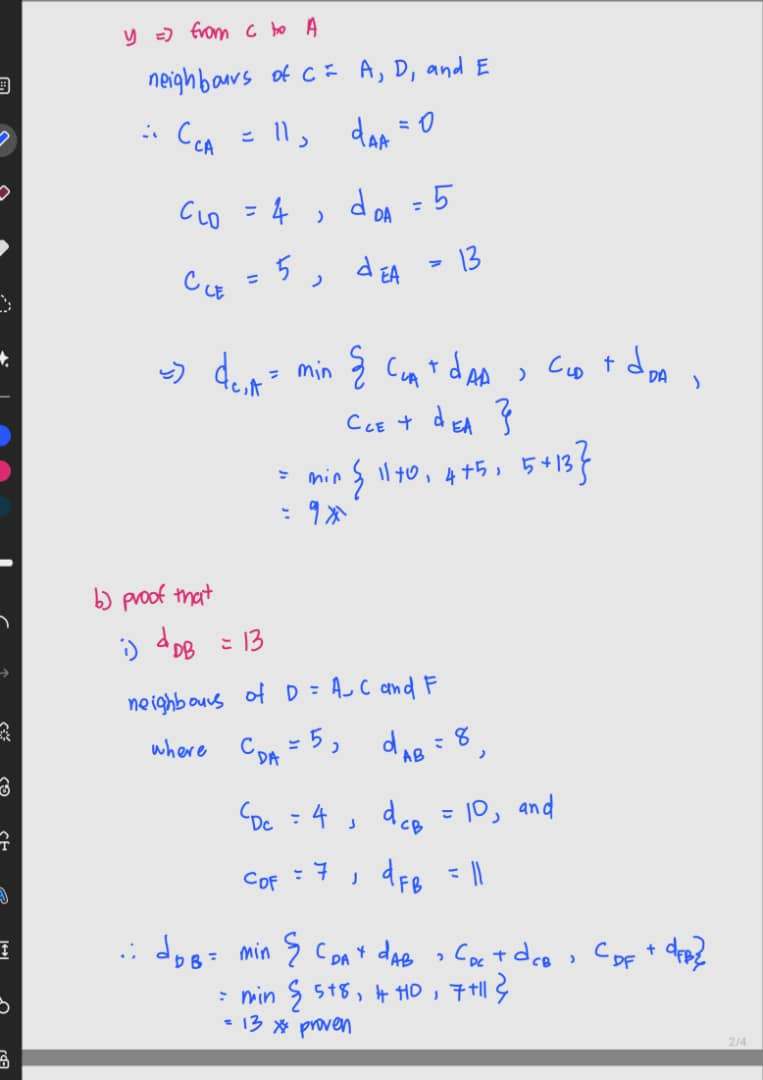 y => from C to A
neighbours of C = A, D, and E
∴ C_CA = 11, d_AA = 0
C_CD = 4, d_DA = 5
C_CE = 5, d_EA = 13
=> d_C,A = min { C_CA + d_AA, C_CD + d_DA,
C_CE + d_EA }
= min { 11+0, 4+5, 5+13 }
= 9
b) proof that
i) d_DB = 13
neighbours of D = A, C and F
where C_DA = 5, d_AB = 8,
C_DC = 4, d_CB = 10, and
C_DF = 7, d_FB = 11
∴ d_DB = min { C_DA + d_AB, C_DC + d_CB, C_DF + d_FB }
= min { 5+8, 4+10, 7+11 }
= 13 proven
2/4